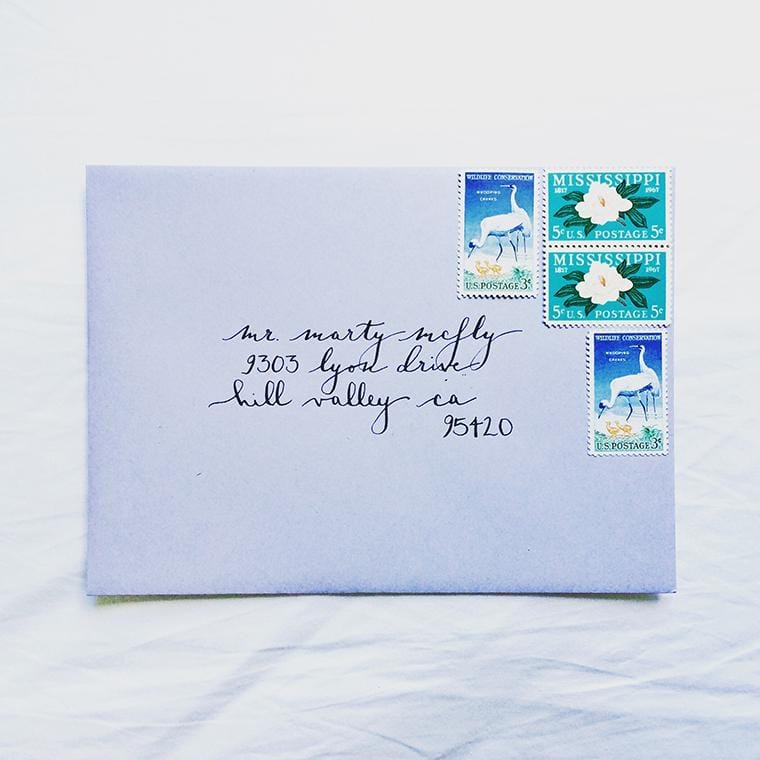 WILDLIFE CONSERVATION
WHOOPING
CRANES
U.S. POSTAGE 3¢
MISSISSIPPI
1817 1967
5¢ U.S. POSTAGE 5¢
MISSISSIPPI
1817 1967
5¢ U.S. POSTAGE 5¢
mr. marty mcfly
9303 lyon drive
hill valley ca
95420
WILDLIFE CONSERVATION
WHOOPING
CRANES
U.S. POSTAGE 3¢